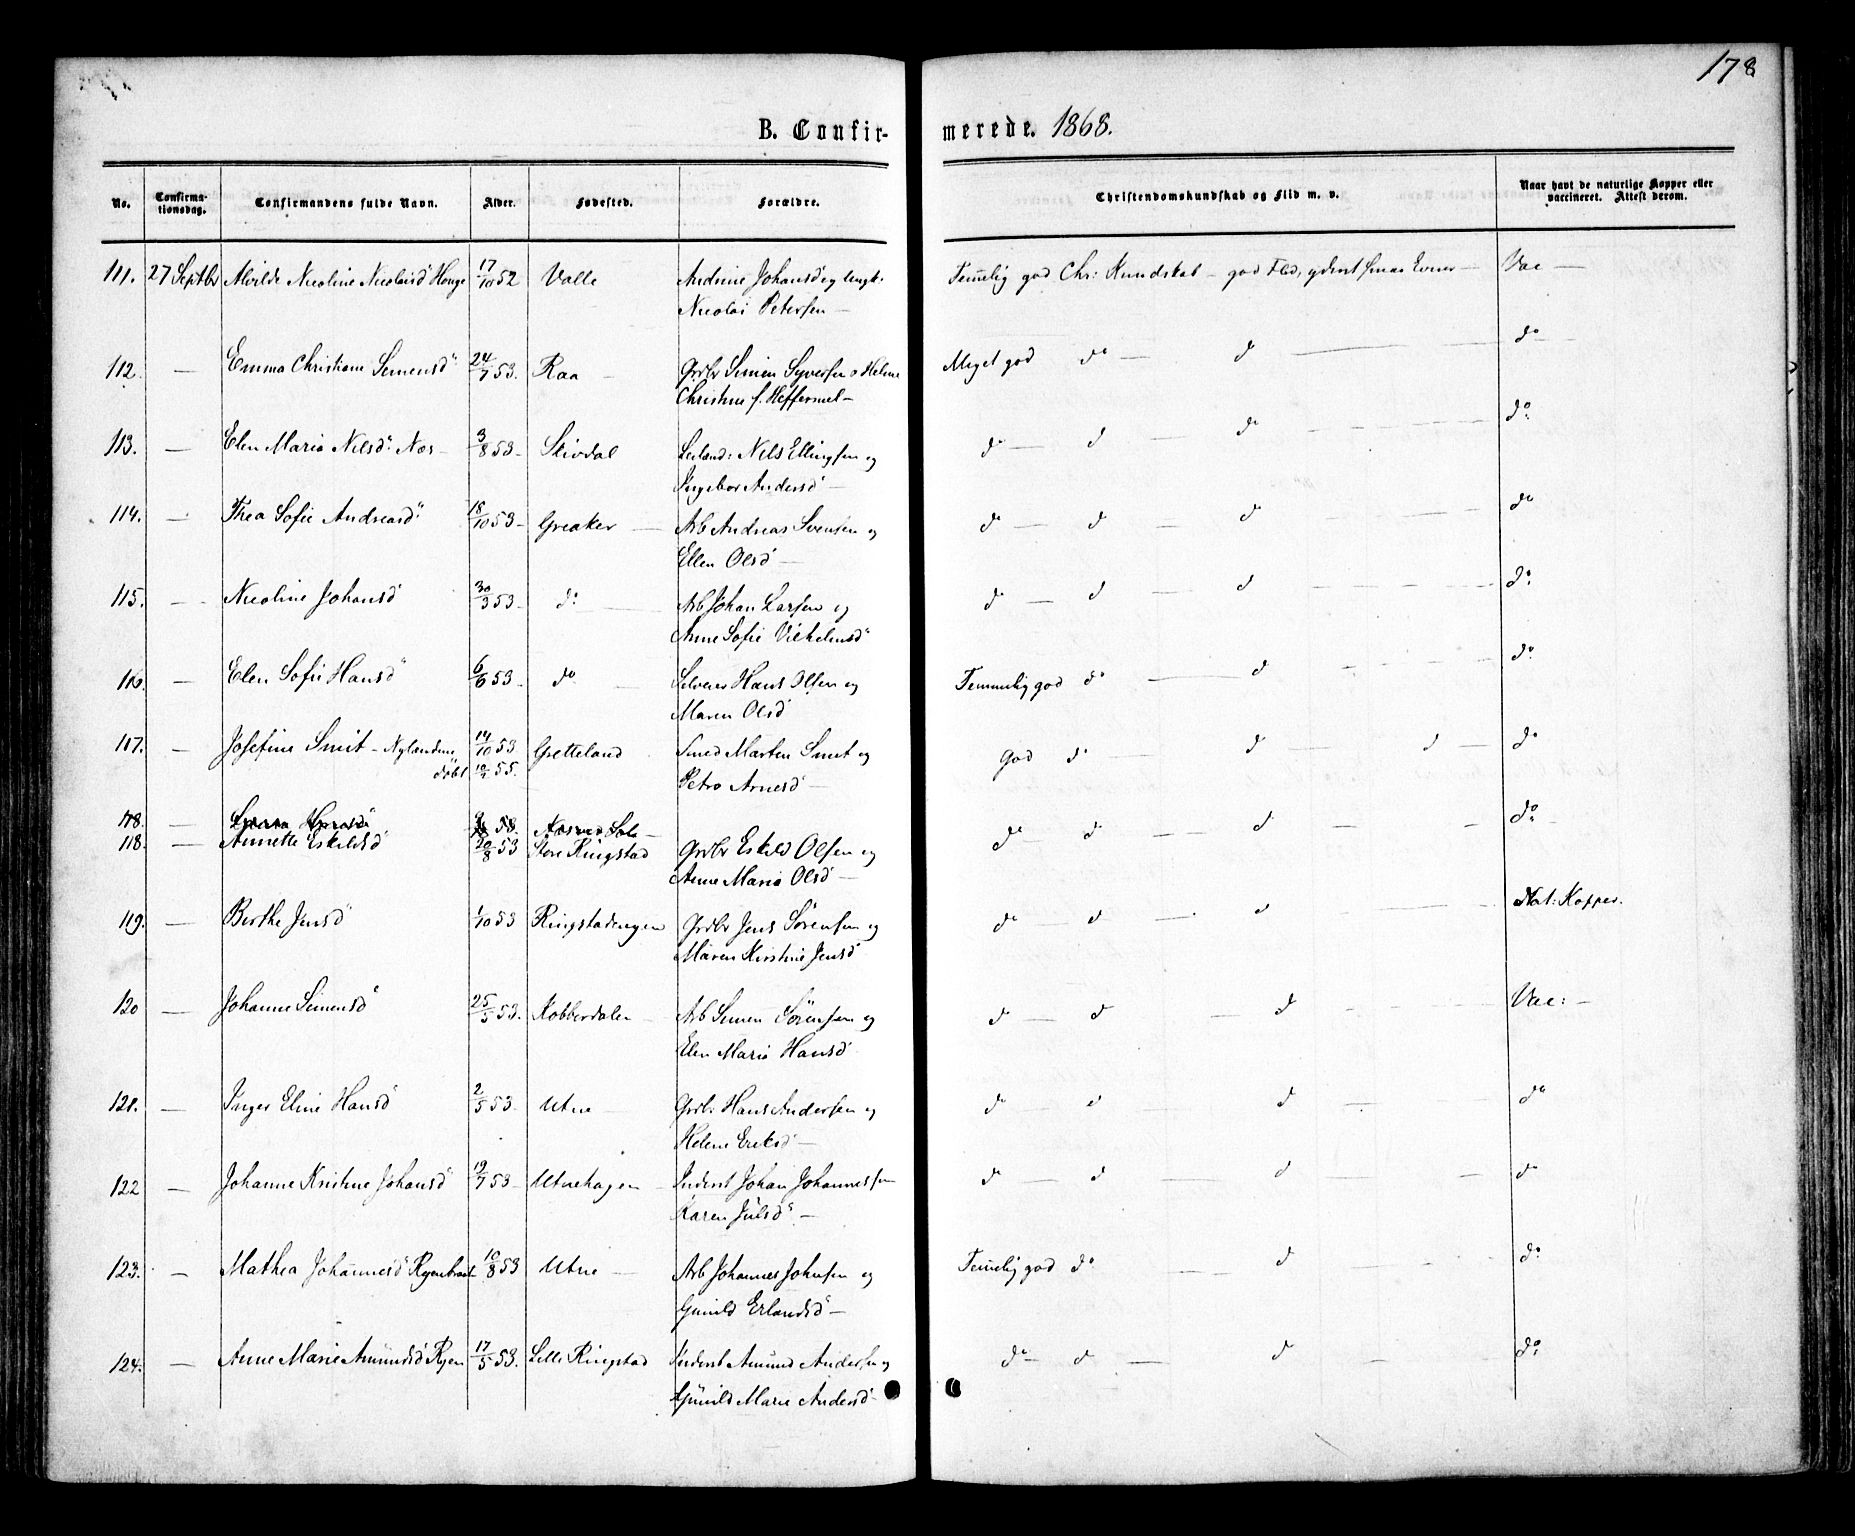 178
B. Confirmerede. 1868.
No. Confirmationsdag. Confirmandens fulde Navn. Alder. Fødested. Forældre. Christendomskundskab og Flid m. v. Naar havt de naturlige Kopper eller vaccineret. Attest derom.
111. 27 Septbr Alvilde Nicoline Nicolaisd Hauge 17/10 52 Valle Andrine Johansd og Nicolai Petersen — Temelig god Chr: Kundskab — god Flid, Vac —
112. — Emma Christiane Simensd 24/7 53. Raa — Grdbr Simen Syversen o Helene Christine f. Heffermel — Meget god do — d — do —
113. — Elen Maria Nilsd: Næs — 3/8 53 — Skivdal Leiland: Nils Ellingsen og Ingebor Andersd — do — d — do do
114. — Thea Sofie Andreasd 18/10 53 — Greaker — Arb Andreas Svensen og Ellen Olsd — do — d — do do
115. — Nicoline Johansd 30/3 53 — do Arb Johan Larsen og Anne Sofie Vilhelmsd do — d — d do
116. — Elen Sofie Hansd 6/6 53 — do — Selveier Hans Olsen og Maren Olsd Temmelig god do — d do
117. — Josefine Smit — Nylændene døbt 14/10 53 55. Gretteland Smed Marten Smit og Petra Arnesd — God do d d — do
118. — Næs
118. — Annette Eskildsd 30/8 53 Store Ringstad Grdbr Eskild Olsen og Anne Maria Olsd — do d — d — do
119. — Berthe Jensd 1/10 53 Ringstadengen Grdbr Jens Sörensen og Maren Kirstine Jensd do — d — d Nat: Kopper.
120 — Johanne Simensd 25/5 53. Kobberdalen Arb Simen Sörensen og Elen Maria Hansd do — d — d Vac: —
121. — Inger Eline Hansd 2/5 53 — Utne — Grdb: Hans Andersen og Helene Eriksd — do — d — d do
122 — Johanne Kristine Johansd 19/7 53 — Utnehagen — Inderst Johan Johannessen Karen Julsd — do — d — d do
123. — Mathea Johannesd 10/8 53 Utne — Arb Johannes Johnsen og Gunild Erlandsd — Temelig god do — d do
124. — Anne Marie Amundsd Ryen 17/5 53. Lille Ringstad Inderst Amund Andersen og Gunild Marie Andersd — do — d — d — do